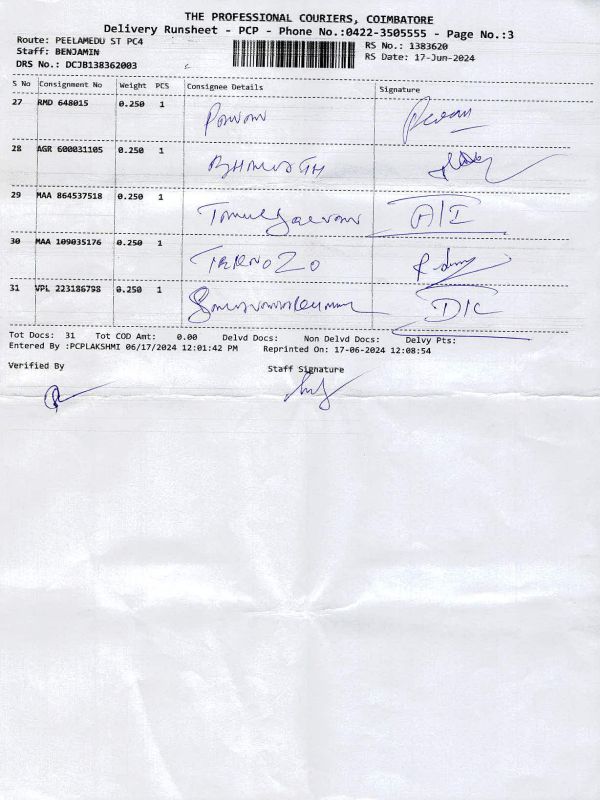 THE PROFESSIONAL COURIERS, COIMBATORE
Delivery Runsheet - PCP - Phone No.:0422-3505555 - Page No.:3
Route: PEELAMEDU ST PC4
Staff: BENJAMIN
DRS No.: DCJB138362003
RS No.: 1383620
RS Date: 17-Jun-2024
S No Consignment No Weight PCS Consignee Details Signature
27 RMD 648015 0.250 1 Pawan
28 AGR 600031105 0.250 1
29 MAA 864537518 0.250 1 A/I
30 MAA 109035176 0.250 1
31 VPL 223186798 0.250 1 D/C
Tot Docs: 31 Tot COD Amt: 0.00 Delvd Docs: Non Delvd Docs: Delvy Pts:
Entered By :PCPLAKSHMI 06/17/2024 12:01:42 PM Reprinted On: 17-06-2024 12:08:54
Verified By Staff Signature